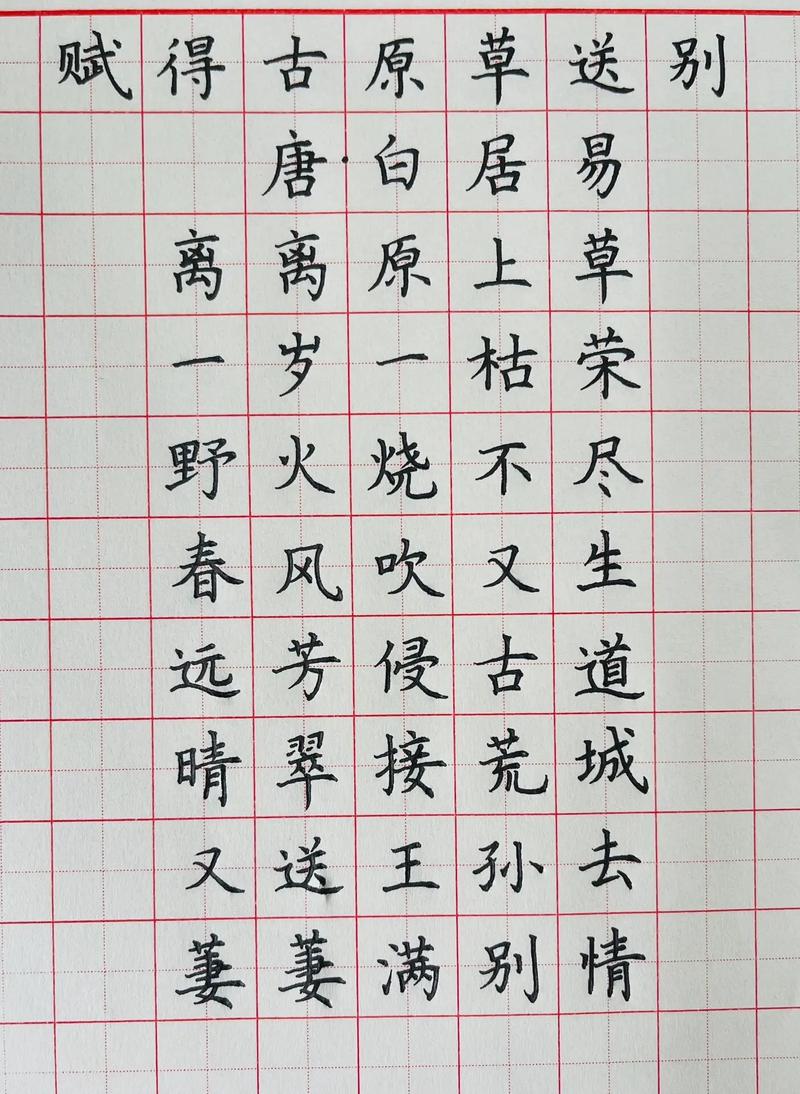 赋得古原草送别
唐·白居易
离离原上草
一岁一枯荣
野火烧不尽
春风吹又生
远芳侵古道
晴翠接荒城
又送王孙去
萋萋满别情